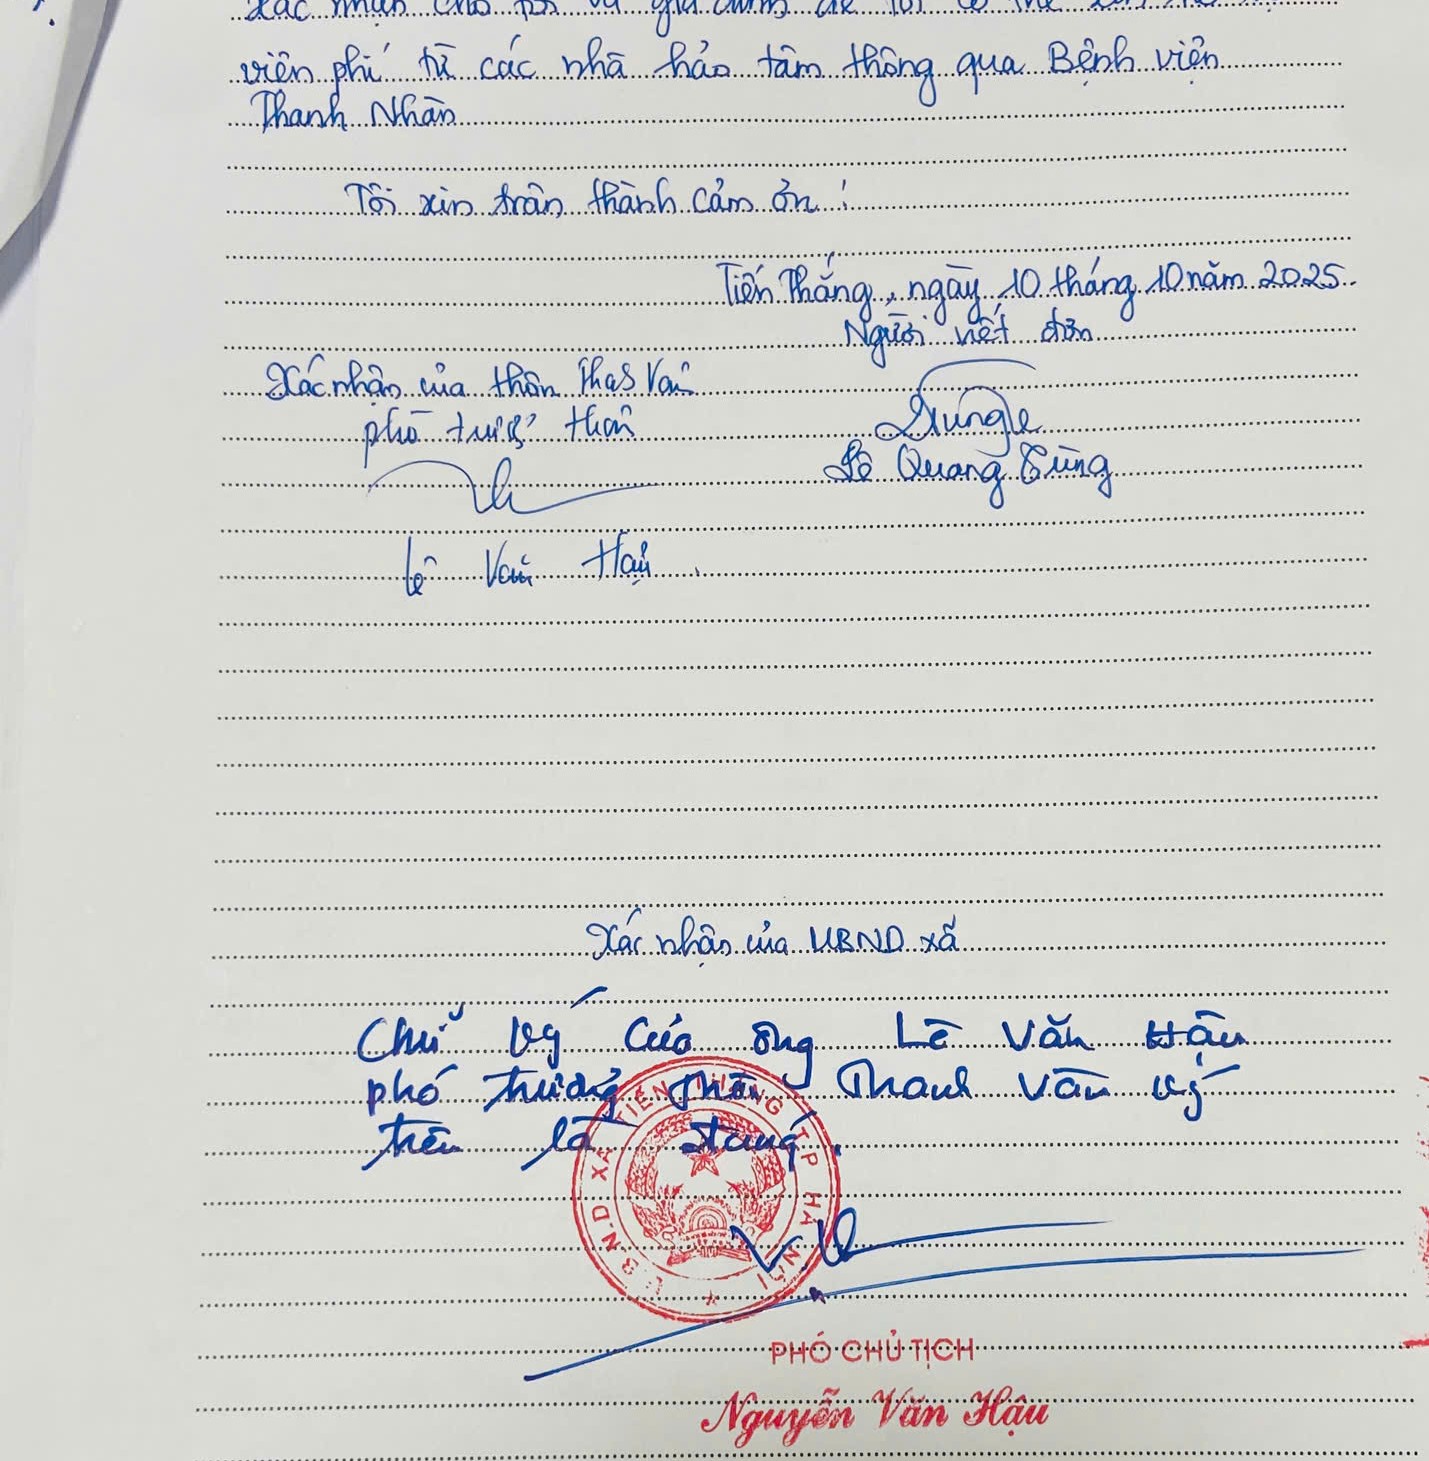 xác nhận cho tôi và gia đình để tôi có thể xin
viện phí từ các nhà hảo tâm thông qua Bệnh viện
Thanh Nhàn
Tôi xin trân thành cảm ơn!
Tiến Thắng, ngày 10 tháng 10 năm 2025
Người viết đơn
Xác nhận của thôn Thanh Vân
phó trưởng thôn
Lê Quang Tùng
Lê Văn Hậu
Xác nhận của UBND xã
Chữ ký của ông Lê Văn Hậu
phó trưởng thôn Thanh Vân ký
trên là đúng.
U.B.N.D XÃ TIẾN THẮNG TP HÀ NỘI
PHÓ CHỦ TỊCH
Nguyễn Văn Hậu